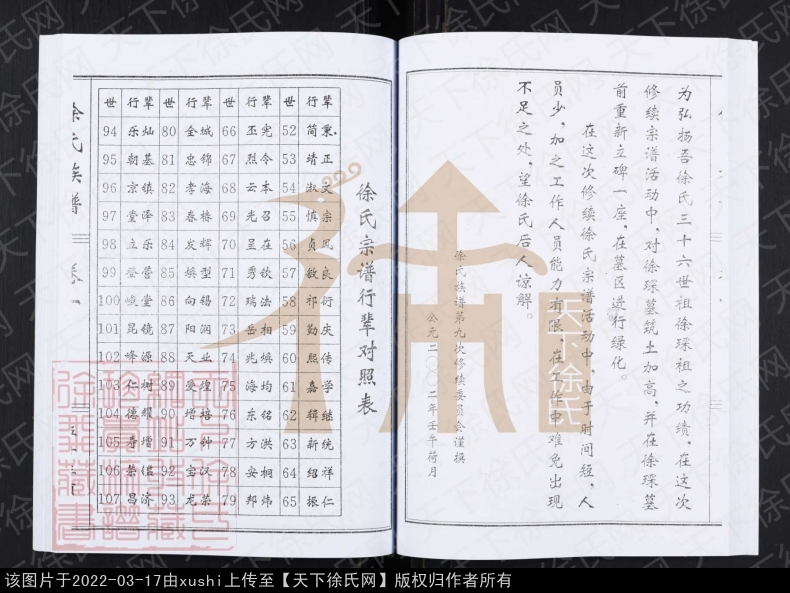 为弘扬吾徐氏三十六世祖徐琛祖之功绩，在这次
修续宗谱活动中，对徐琛墓筑土加高，并在徐琛墓
前重新立碑一座，在墓区进行绿化。
在这次修续徐氏宗谱活动中，由于时间短，人
员少，加之工作人员能力有限，在工作中难免出现
不足之处，望徐氏后人谅解。
徐氏族谱第九次修续委员会谨撰
公元二〇〇二年壬午荷月
徐氏宗谱行辈对照表
世 行辈 世 行辈 世 行辈 世 行辈
94 乐灿 80 金城 66 丕宪 52 简秉
95 朝基 81 忠锦 67 烈令 53 靖正
96 京镇 82 孝海 68 云本 54 淑文
97 堂泽 83 春椿 69 光召 55 慎宗
98 立乐 84 友辉 70 呈在 56 贞风
99 登营 85 焕型 71 秀钦 57 敏良
100 峻堂 86 向锡 72 瑞法 58 祁衍
101 昆镜 87 阳润 73 岳相 59 勤庆
102 峰源 88 天业 74 兆焕 60 熙传
103 仁树 89 爱煌 75 海均 61 嘉学
104 德耀 90 增培 76 东铭 62 辑继
105 寿增 91 万钟 77 方洪 63 新统
106 荣温 92 宝汉 78 安桐 64 绍祥
107 昌济 93 龙荣 79 邦炜 65 振仁
徐氏族谱
卷一
天下徐氏
天下徐氏网
该图片于2022-03-17由xushi上传至【天下徐氏网】版权归作者所有